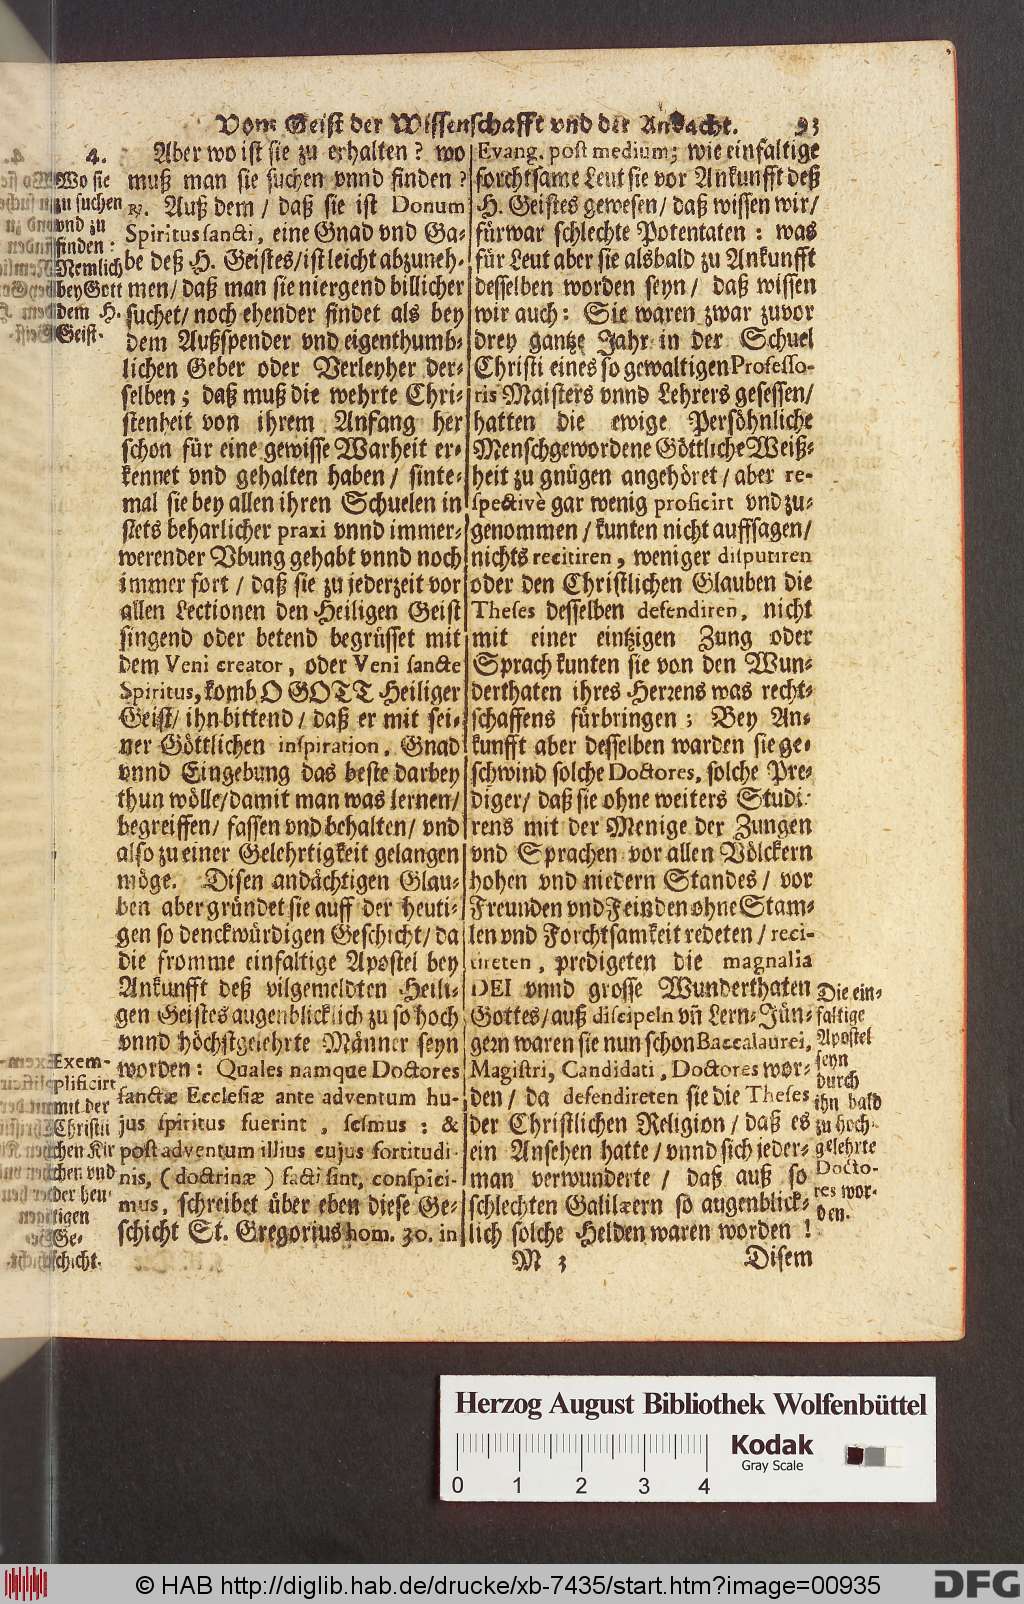 Vom Geist der Wissenschafft vnd der Andacht. 93
4.
Wo sie
zu suchen
vnd zu
finden:
Nemlich
bey Gott
dem H.
Geist.
Aber wo ist sie zu erhalten? wo
muß man sie suchen vnnd finden?
℞. Auß dem / daß sie ist Donum
Spiritus sancti, eine Gnad vnd Ga-
be deß H. Geistes / ist leicht abzuneh-
men / daß man sie niergend billicher
suchet / noch ehender findet als bey
dem Außspender vnd eigenthumb-
lichen Geber oder Verleyher der-
selben; daß muß die wehrte Chri-
stenheit von ihrem Anfang her
schon für eine gewisse Warheit er-
kennet vnd gehalten haben / sinte-
mal sie bey allen ihren Schuelen in
stets beharlicher praxi vnnd immer-
werender Vbung gehabt vnnd noch
immer fort / daß sie zu jederzeit vor
allen Lectionen den Heiligen Geist
singend oder betend begrüsset mit
dem Veni creator, oder Veni sancte
Spiritus, komb O GOTT Heiliger
Geist / ihn bittend / daß er mit sei-
ner Göttlichen inspiration, Gnad
vnnd Eingebung das beste darbey
thun wölle / damit man was lernen /
begreiffen / fassen vnd behalten / vnd
also zu einer Gelehrtigkeit gelangen
möge. Disen andächtigen Glau-
ben aber gründet sie auff der heuti-
gen so denckwürdigen Geschicht / da
die fromme einfaltige Apostel bey
Ankunfft deß vilgemeldten Heili-
gen Geistes augenblicklich zu so hoch
vnnd höchstgelehrte Männer seyn
worden: Quales namque Doctores
sanctæ Ecclesiæ ante adventum hu-
jus spiritus fuerint, scimus: &
post adventum illius cujus fortitudi-
nis, (doctrinæ) facti sint, conspici-
mus, schreibet über eben diese Ge-
schicht St. Gregorius hom. 30. in
Exem-
plificirt
mit der
Christli
chen Kir
chen vnd
der heu-
tigen
Ge-
schicht.
Evang. post medium; wie einfaltige
forchtsame Leut sie vor Ankunfft deß
H. Geistes gewesen / daß wissen wir /
fürwar schlechte Potentaten: was
für Leut aber sie alsbald zu Ankunfft
desselben worden seyn / daß wissen
wir auch: Sie waren zwar zuvor
drey gantze Jahr in der Schuel
Christi eines so gewaltigen Professo-
ris Maisters vnnd Lehrers gesessen /
hatten die ewige Persöhnliche
Menschgewordene Göttliche Weiß-
heit zu gnügen angehöret / aber re-
spectivè gar wenig proficirt vnd zu-
genommen / kunten nicht auffsagen /
nichts recitiren, weniger disputiren
oder den Christlichen Glauben die
Theses desselben defendiren, nicht
mit einer eintzigen Zung oder
Sprach kunten sie von den Wun-
derthaten ihres Herzens was recht-
schaffens fürbringen; Bey An-
kunfft aber desselben warden sie ge-
schwind solche Doctores, solche Pre-
diger / daß sie ohne weiters Studi-
rens mit der Menige der Zungen
vnd Sprachen vor allen Völckern
hohen vnd niedern Standes / vor
Freunden vnd Feinden ohne Stam-
len vnd Forchtsamkeit redeten / reci-
tireten, predigeten die magnalia
DEI vnnd grosse Wunderthaten
Gottes / auß discipeln vñ Lern-Jün-
gern waren sie nun schon Baccalaurei,
Magistri, Candidati, Doctores wor-
den / da defendireten sie die Theses
der Christlichen Religion / daß es
ein Ansehen hatte / vnnd sich jeder-
man verwunderte / daß auß so
schlechten Galilæern so augenblick-
lich solche Helden waren worden!
Die ein-
faltige
Apostel
seyn
durch
ihn bald
zu hoch-
gelehrte
Docto-
res wor-
den.
M 3
Disem
Herzog August Bibliothek Wolfenbüttel
Kodak
Gray Scale
0 1 2 3 4
© HAB http://diglib.hab.de/drucke/xb-7435/start.htm?image=00935
DFG